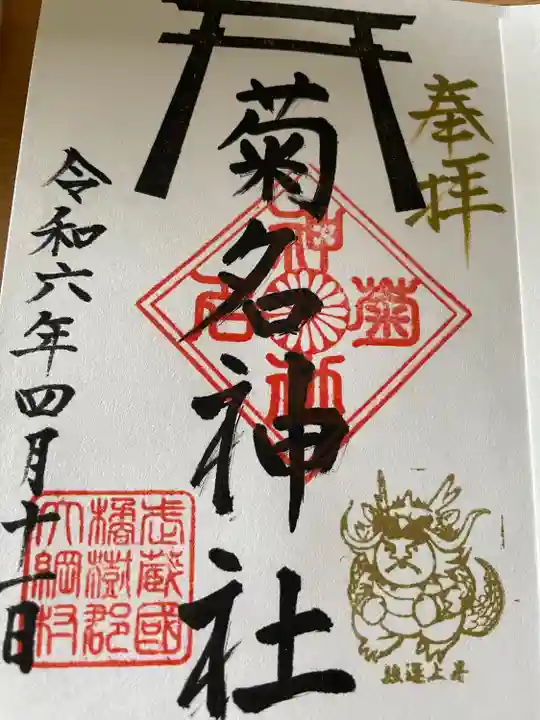 奉拝
菊名神社
菊名神社
武蔵國
橘樹郡
大綱村
令和六年四月十一日
強運上昇